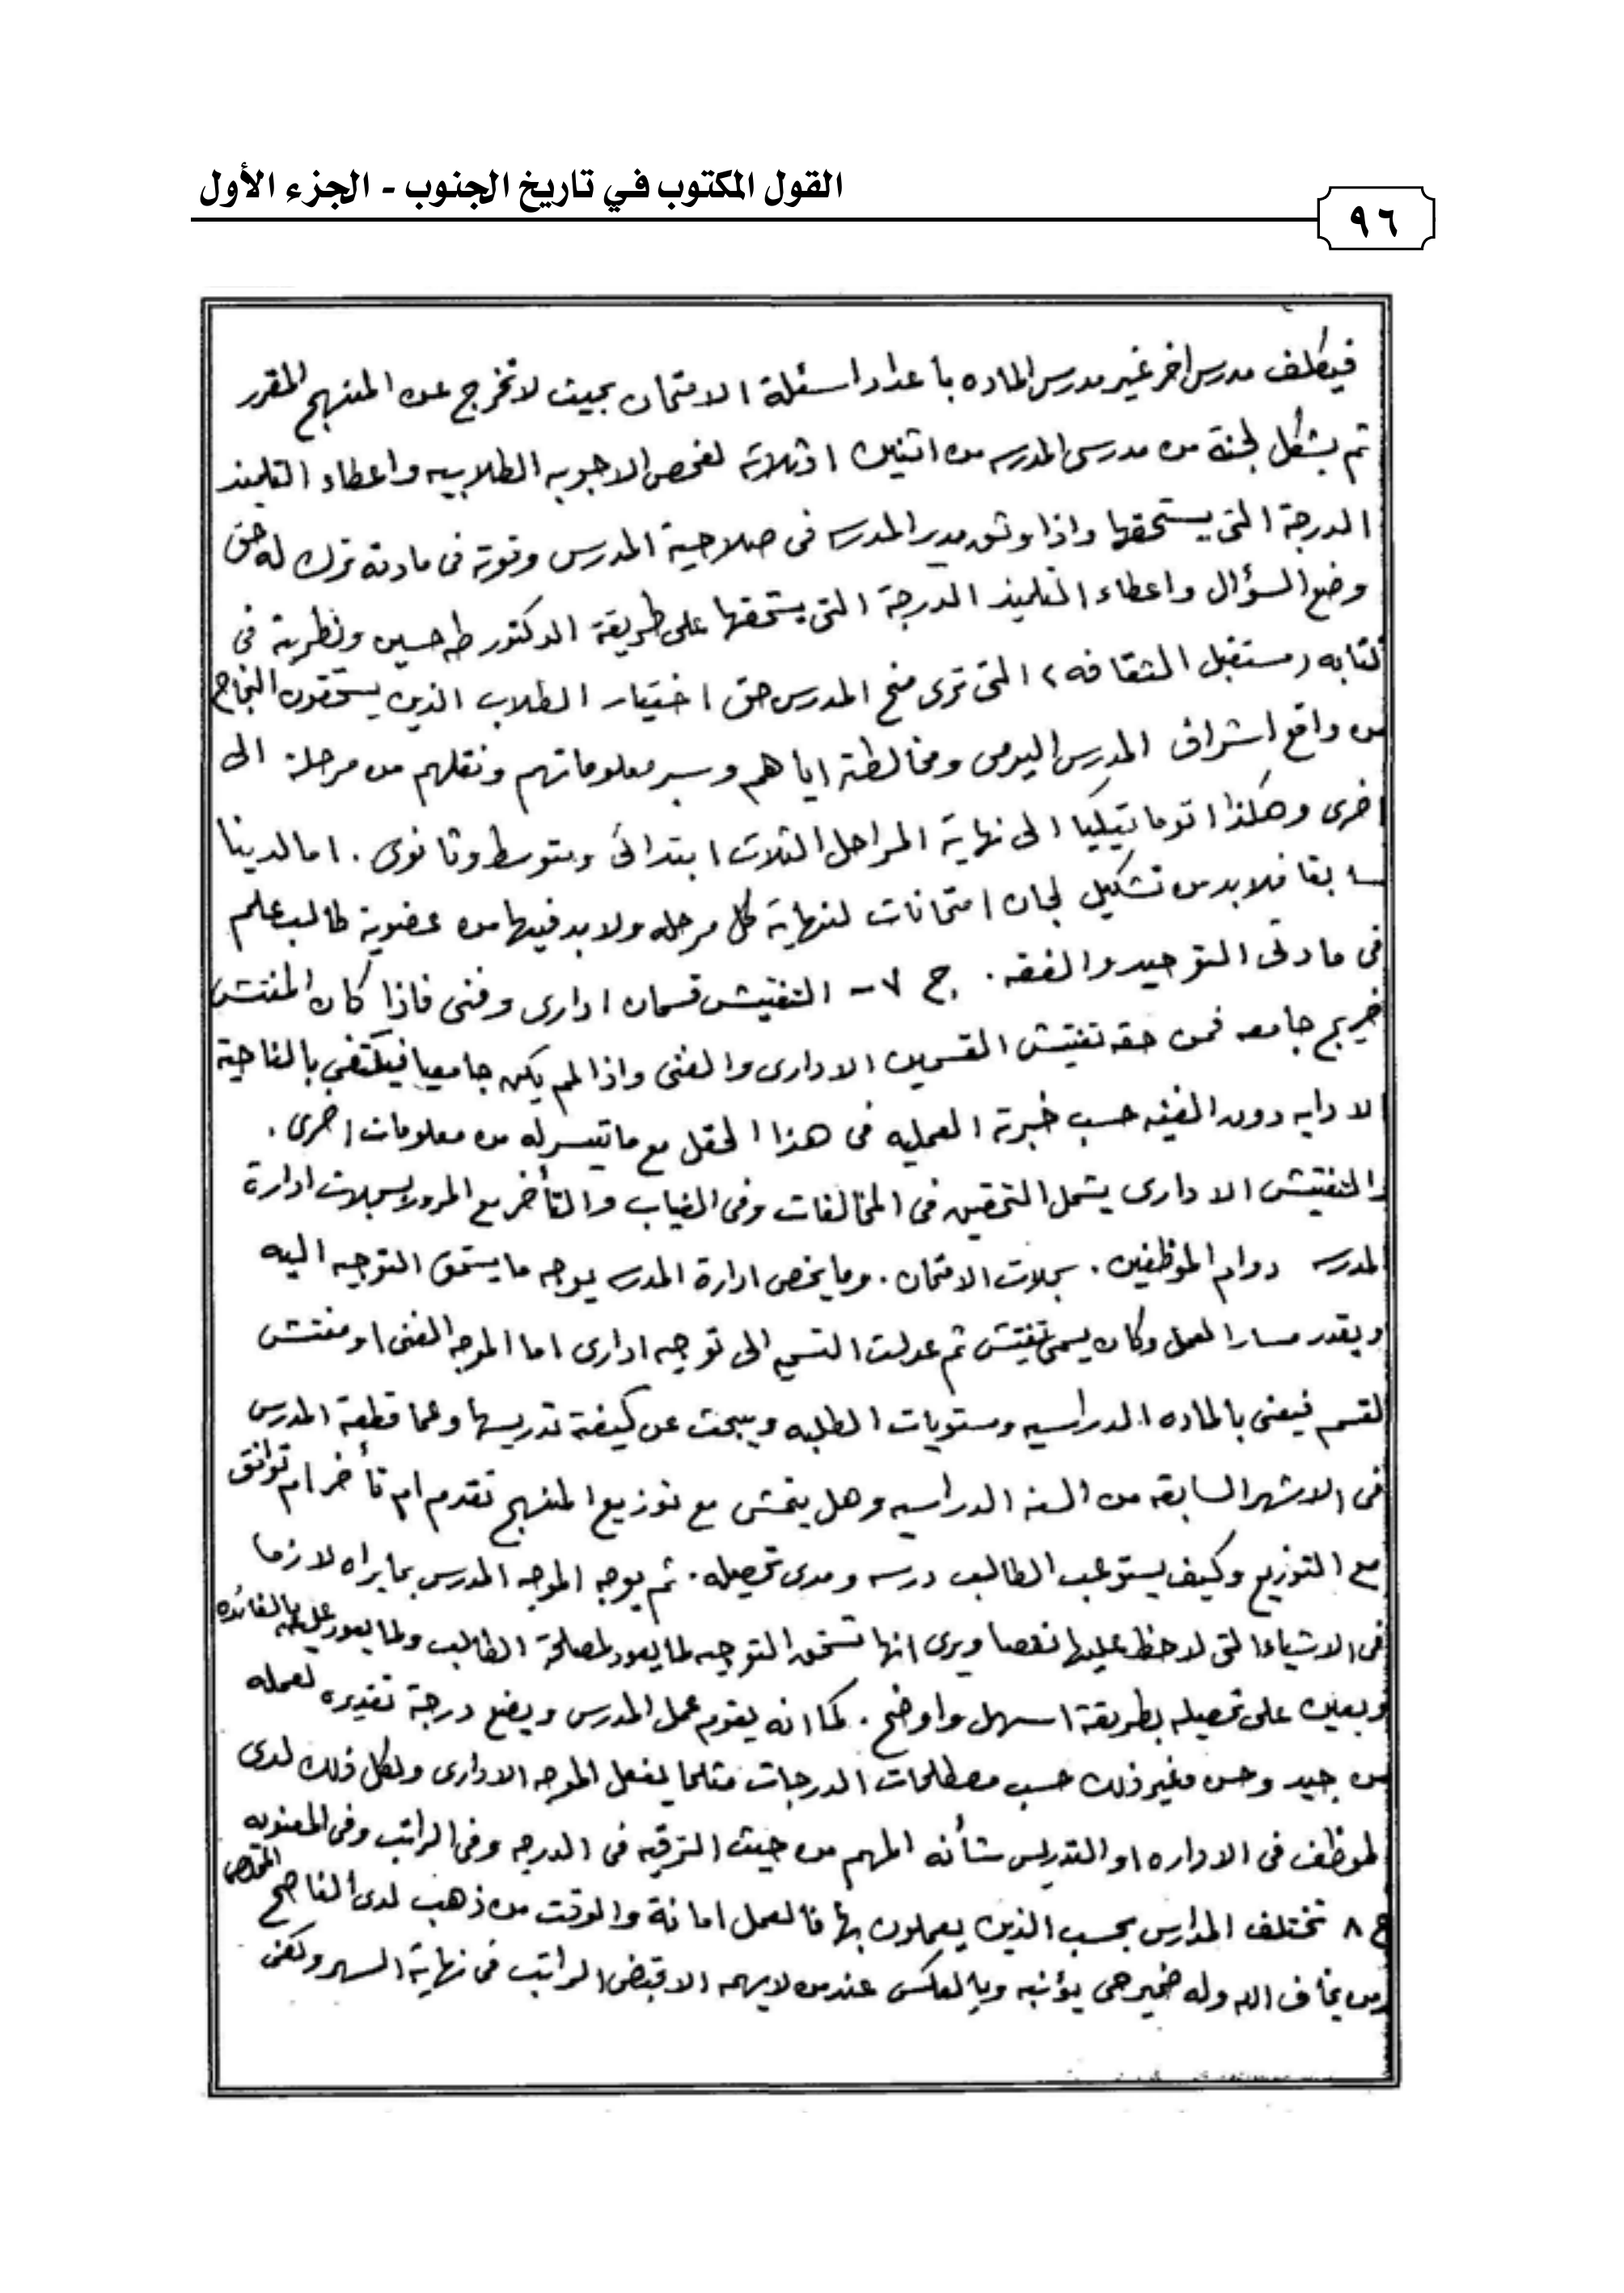 القول المكتوب في تاريخ الجنوب - الجزء الأول
٩٦
فيكلف مدرس اخر غير مدرس الماده بأعداد اسئلة الامتحان بحيث لا تخرج عن المنهج المقرر
ثم يشكل لجنة من مدرسى المدرسه من اثنين او ثلاثه لفحص الاجوبه الطلابيه واعطاء التلميذ
الدرجة التى يستحقها واذا وثق مدير المدرسه فى صلاحية المدرس وقوته فى مادته ترك له حق
وضع السؤال واعطاء التلميذ الدرجة التى يستحقها على طريقة الدكتور طه حسين ونظريته فى
كتابه (مستقبل الثقافه) التى ترى منح المدرس حق اختيار الطلاب الذين يستحقون النجاح
من واقع اشراف المدرس اليومى ومخالطته اياهم وسبر معلوماتهم ونقلهم من مرحلة الى
اخرى وهكذا اتوماتيكيا الى نهاية المراحل الثلاث ابتدائى ومتوسط وثانوى . اما لدينا
سابقا فلا بد من تشكيل لجان امتحانات لنهاية كل مرحله ولا بد فيها من عضوية طالب علم
فى مادتى التوحيد والفقه . ج ٧ - التفتيش قسمان ادارى وفنى فاذا كان المفتش
خريج جامعه فمن حقه تفتيش القسمين الادارى والفنى واذا لم يكن جامعيا فيكتفي بالناحية
الادايه دون الفنيه حسب خبرته العمليه فى هذا الحقل مع ما تيسر له من معلومات اخرى .
والتفتيش الادارى يشمل التحقيق فى المخالفات وفى الغياب والتأخر مع المرور لسجلات ادارة
المدرسه دوام الموظفين . سجلات الامتحان . وما يخص ادارة المدرسه يوجه ما يستحق التوجيه اليه
ويقدر مسار العمل وكان يسمى تفتيش ثم عدلت التسميه الى توجيه ادارى اما الموجه الفنى او مفتش
القسم فيعنى بالماده الدراسيه ومستويات الطلبه ويبحث عن كيفة تدريسها وعما قطعة المدرس
فى الاشهر السابقه من السنه الدراسيه وهل يتمشى مع توزيع المنهج تقدم ام تأخر ام توافق
مع التوزيع وكيف يستوعب الطالب درسه ومدى تحصيله . ثم يوجه الموجه المدرس بما يراه لازما
فى الاشياء التى لاحظ عليها نقصا ويرى انها تستحق التوجيه لما يعود لمصلحة الطالب ولما يعود عليه بالفائده
ويعين على تحصيله بطريقة اسهل واوضح . كما انه يقوم عمل المدرس ويضع درجة تقديره لعمله
من جيد وحسن وغير ذلك حسب مصطلحات الدرجات مثلما يفعل الموجه الادارى ولكل ذلك لدى
الموظف فى الاداره او التدريس شأنه المهم من حيث الترقيه فى الدرجه وفى الراتب وفى المعنويه
ج ٨ تختلف المدارس بحسب الذين يعملون بها فالعمل امانة والوقت من ذهب لدى الناصح المخلص
ومن يخاف الله وله ضمير حى يؤنبه وبالعكس عند من لا يهمه الا قبض الراتب فى نهاية الشهر وكفى